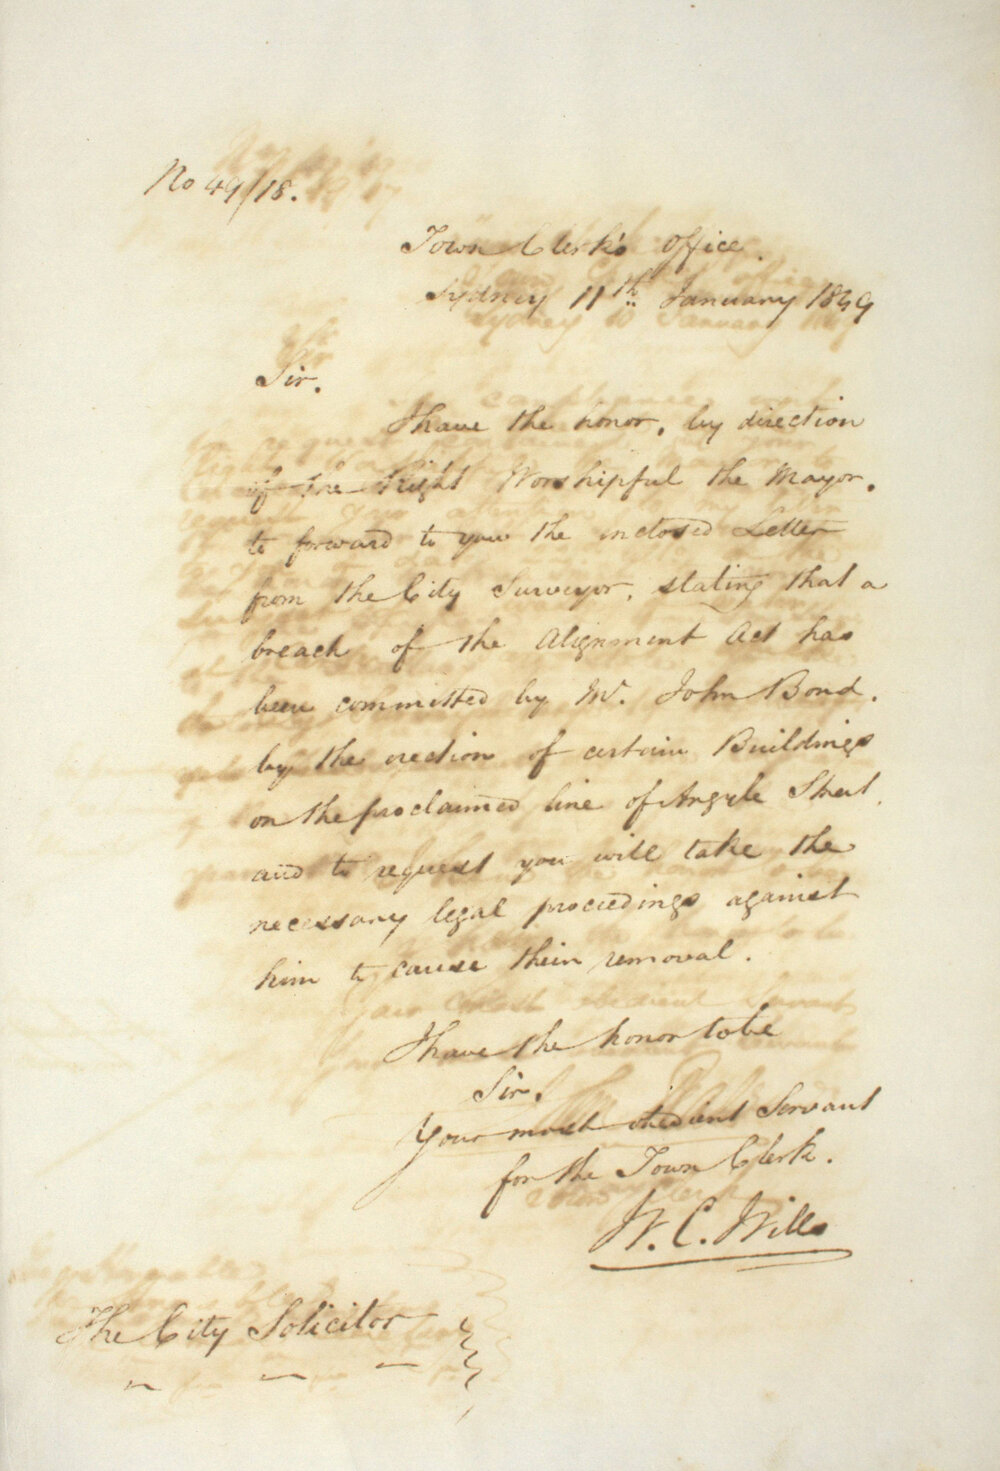 No 49/18.
Town Clerk's Office.
Sydney 11th January 1849
Sir.
I have the honor, by direction
of the Right Worshipful the Mayor.
to forward to you the inclosed Letter
from the City Surveyor, stating that a
breach of the Alignment Act has
been committed by Mr. John Bond.
by the erection of certain Buildings
on the proclaimed line of Argyle Street.
and to request you will take the
necessary legal proceedings against
him to cause their removal.
I have the honor to be
Sir.
Your most obedient Servant
for the Town Clerk.
W. C. Wills
The City Solicitor